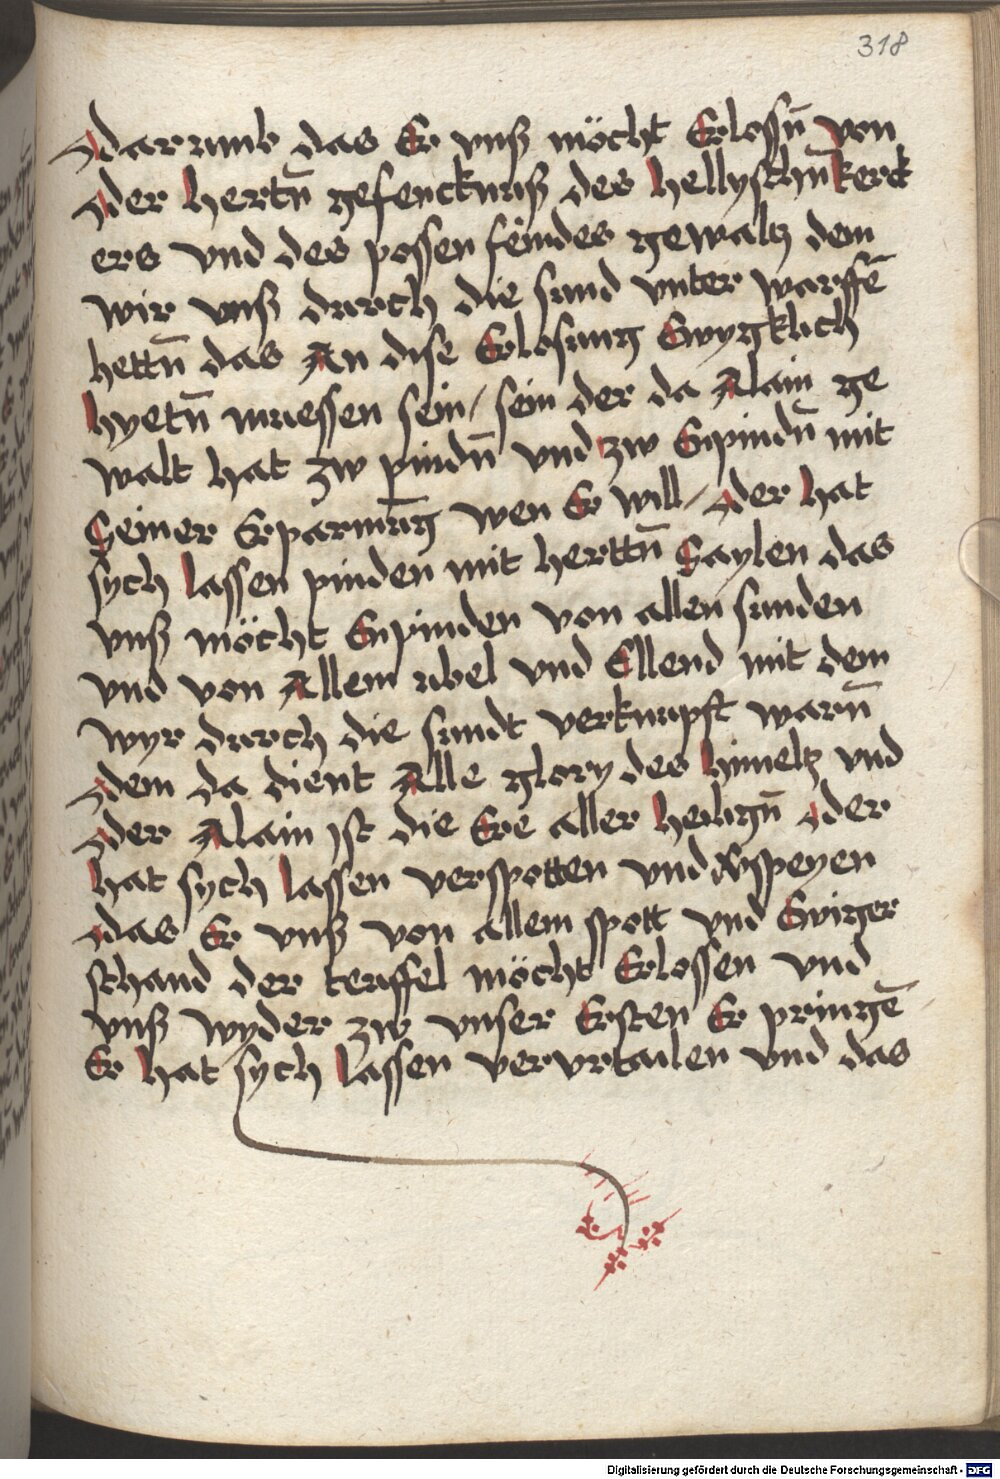 318
darumb das Er vnß möcht Erlossn̄ von
der hertn̄ gefencknuß des hellyschn̄ kerck
ers vnd des possen feindes gewaltz dem
wir vnß durch die sund vnter warffē
hettn̄ das An dise Erlosung Ewygklich
hyetn̄ muessen sein / sein der da Alain ge
walt hat zw pindn̄ vnd zw Enpindn̄ mit
Seiner Erparmūg wen Er will / der hat
sych lassen pinden mit herttn̄ Saylen das
vnß möcht Enpinden von allen sunden
vnd von Allem ubel vnd Ellend mit dem
wyr durch die sundt verknupft warn̄
dem da dient Alle glory des himeltz vnd
der Alain Ist die Ere aller heilign̄ der
hat sych lassen verspotten vnd verspeyen
das Er vnß von allem spott vnd Ewiger
schand der teuffel möcht Erlossen vnd
vnß wyder zw vnser Ersten Er pringē
Er hat sych lassen vervrtailen vnd das
Digitalisierung gefördert durch die Deutsche Forschungsgemeinschaft - DFG